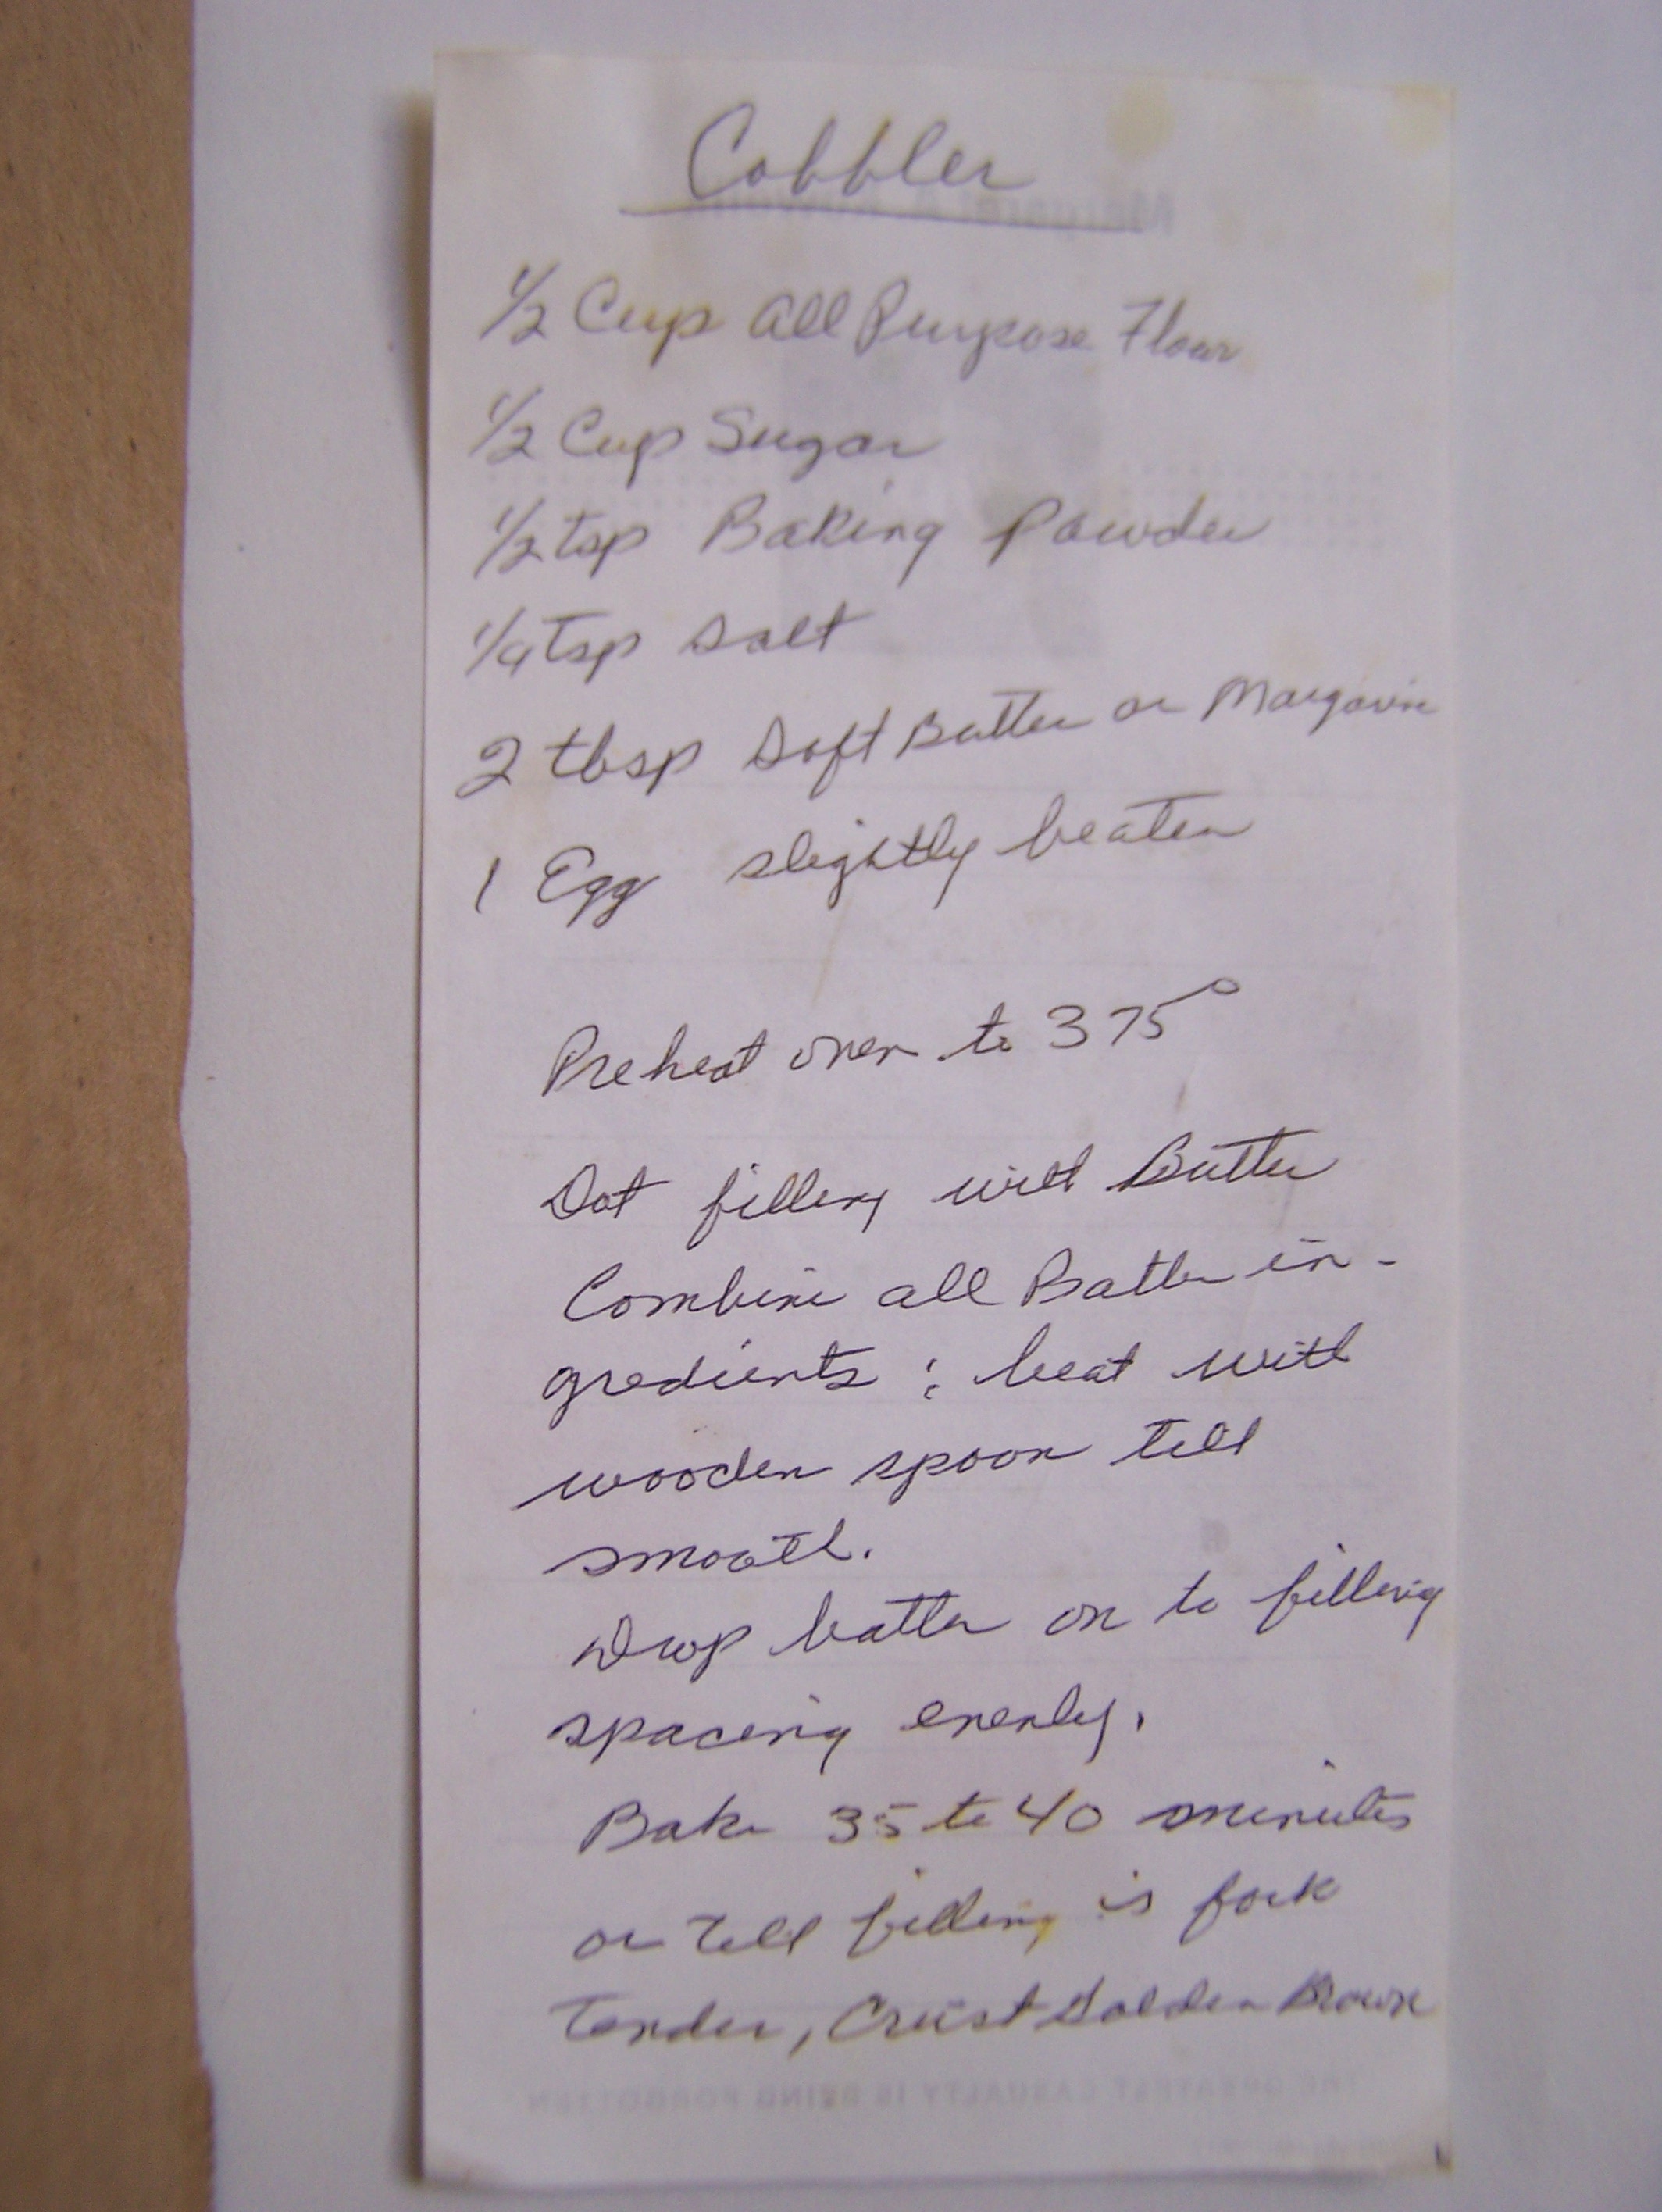 Cobbler
1/2 Cup All Purpose Flour
1/2 Cup Sugar
1/2 tsp Baking Powder
1/4 Tsp Salt
2 tbsp Soft Butter or Margarine
1 Egg slightly beaten
Preheat oven to 375°
Dot filling with Butter
Combine all Batter in-
gredients; beat with
wooden spoon till
smooth.
Drop batter on to filling
spacing evenly.
Bake 35 to 40 minutes
or till filling is fork
Tender, Crust Golden Brown
THE GREATEST CASUALTY IS BEING FORGOTTEN